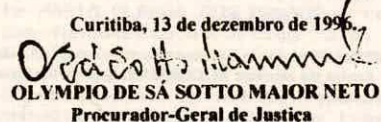 Curitiba, 13 de dezembro de 1996.
OLYMPIO DE SÁ SOTTO MAIOR NETO
Procurador-Geral de Justiça